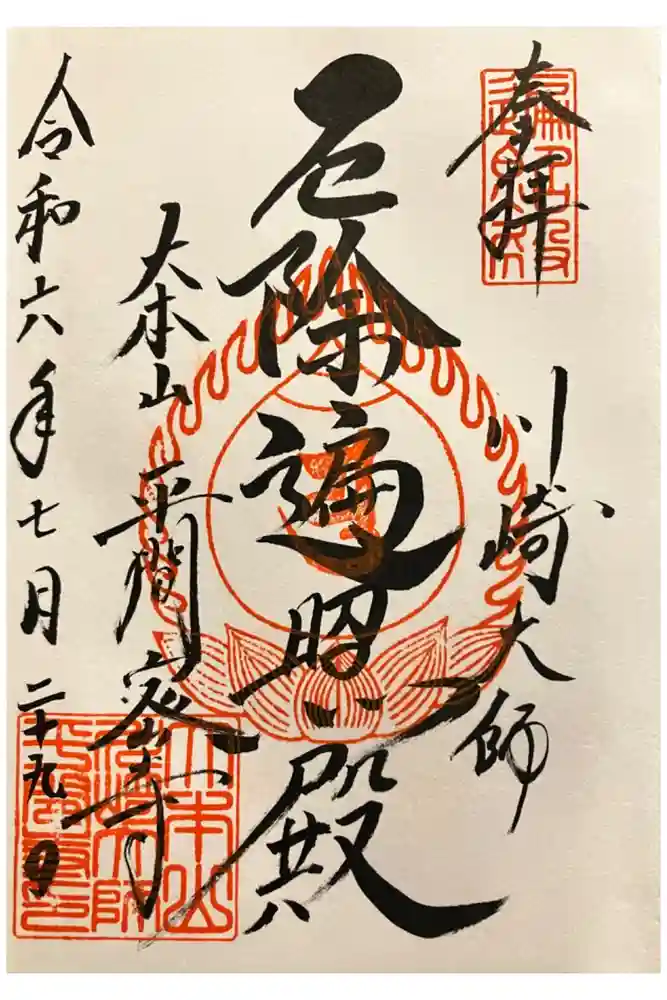 奉拝
川崎大師
厄除遍照殿
大本山 平間密寺
令和六年七月二十九日
大本山